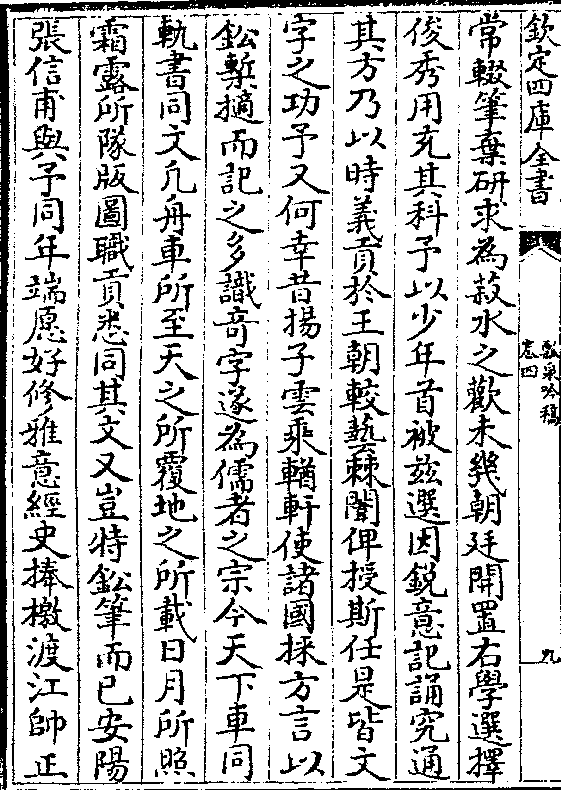 欽定四庫全書
瓢泉吟稿
卷四
九
常輟筆棄研求為菽水之歡未幾朝廷開置右學選擇
俊秀用充其科予以少年首被兹選因銳意記誦究通
其方乃以時義貢於王朝較藝棘闈俾授斯任是皆文
字之功予又何幸昔揚子雲乘輶軒使諸國採方言以
鈆槧擿而記之多識奇字遂為儒者之宗今天下車同
軌書同文凡舟車所至天之所覆地之所載日月所照
霜露所隊版圖職貢悉同其文又豈特鈆筆而已安陽
張信甫與予同年端愿好修雅意經史捧檄渡江帥正